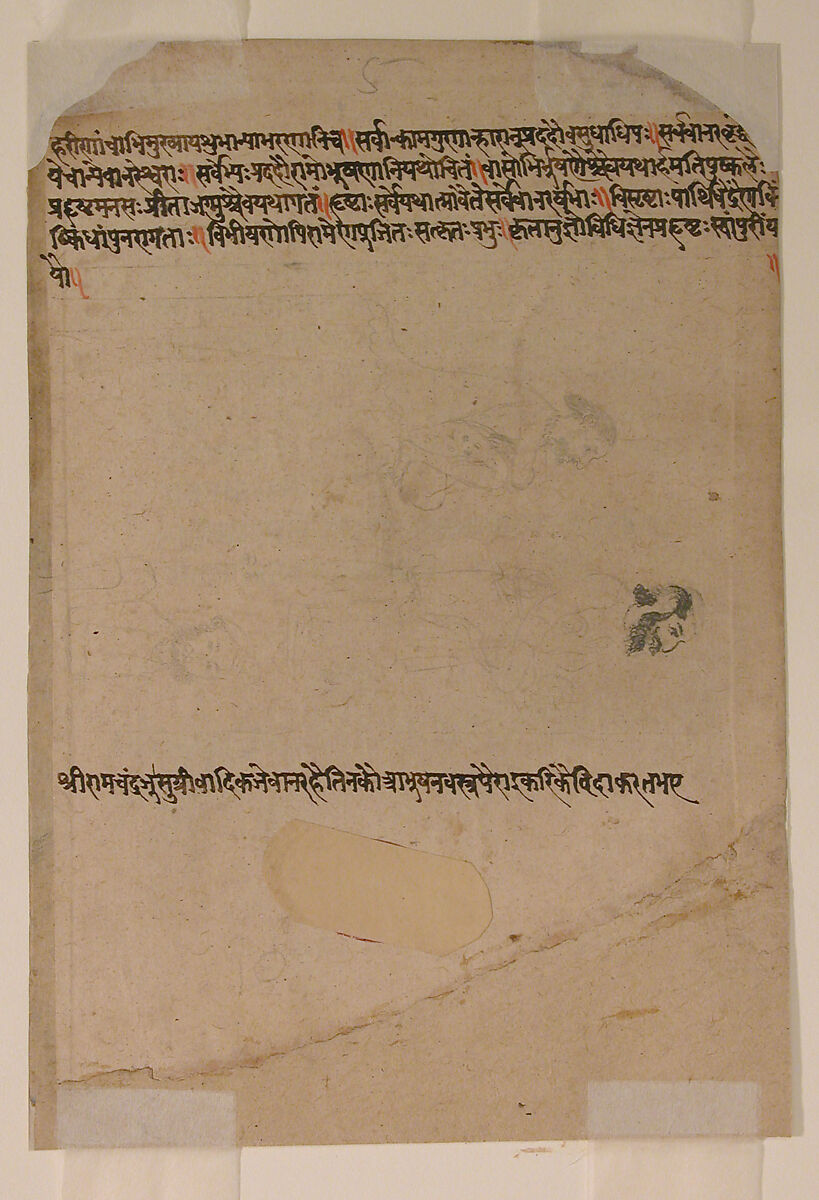 हरीणां चाधिमुख्याय शुभान्याभरणानि च॥ सर्वान्कामगुणान्हारान्प्रददौ वसुधाधिपः॥ सर्वे वानरवृद्धा
ये चान्ये वानरेश्वराः॥ सर्वेभ्यः प्रददौ रामो भूषणानि यथोचितं॥ वासोभिर्भूषणैश्चैव यथार्हमतिपुष्कलैः
प्रहृष्टमनसः प्रीता जग्मुश्चैव यथागतं॥ हृष्टाः सर्वे यथात्मा वै ते सर्वे वानरर्षभाः॥ विसृष्टाः पार्थिवेंद्रेण कि
ष्किंधां पुनरागताः॥ विभीषणोपि रामेण पूजितः सत्कृतः प्रभुः॥ कृतानुज्ञो विधिज्ञेन प्रहृष्टः स्वां पुरीं य
यौ॥
श्रीरामचंद्रजु सुग्रीवादिक जे वानर है तिनकौ आभुषन वस्त्र पैराइ करिकै विदा करत भए